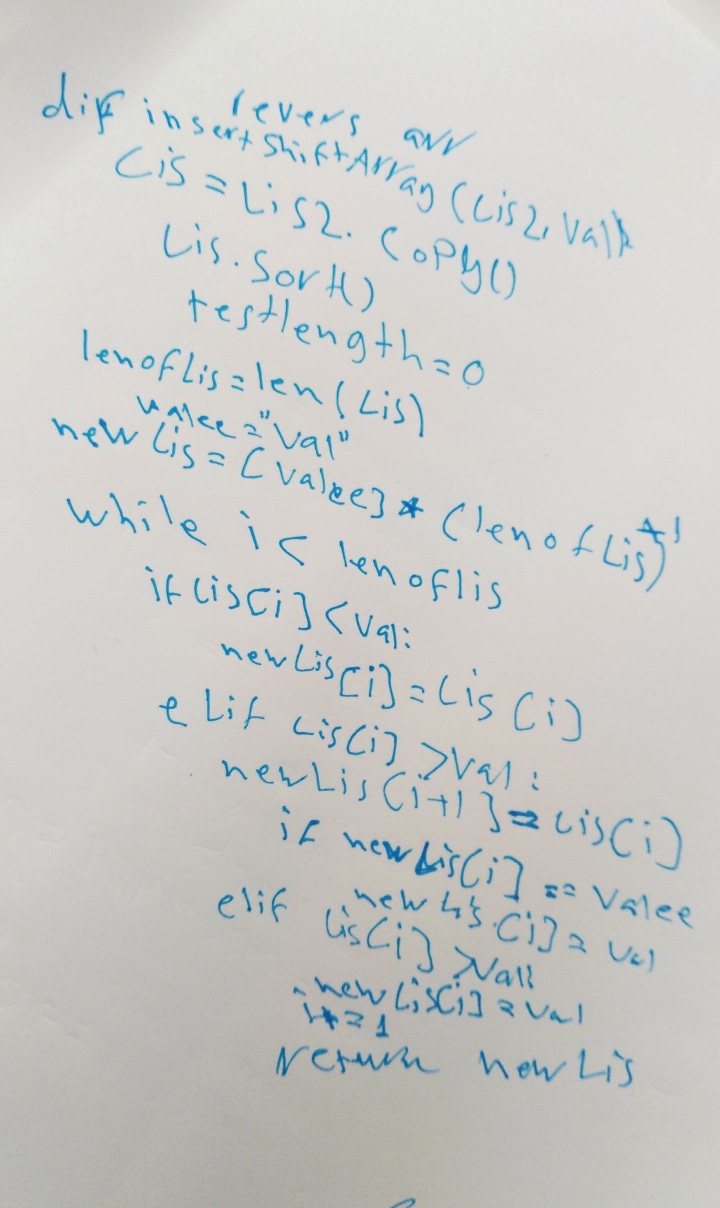 revers arr
def insertShiftArray (Lis2, Val):
Lis = Lis2. Copy()
Lis. Sort()
testlength = 0
lenofLis = len(Lis)
valee = "Val"
new Lis = [valee] * (lenofLis)+1
while i < lenoflis
if Lis[i] < Val:
newLis[i] = Lis [i]
eLif Lis[i] > Val:
newLis[i+1] = Lis[i]
if newLis[i] == Valee
new Lis [i] = Val
elif Lis[i] > Val:
newLis[i] = Val
i+=1
return newLis